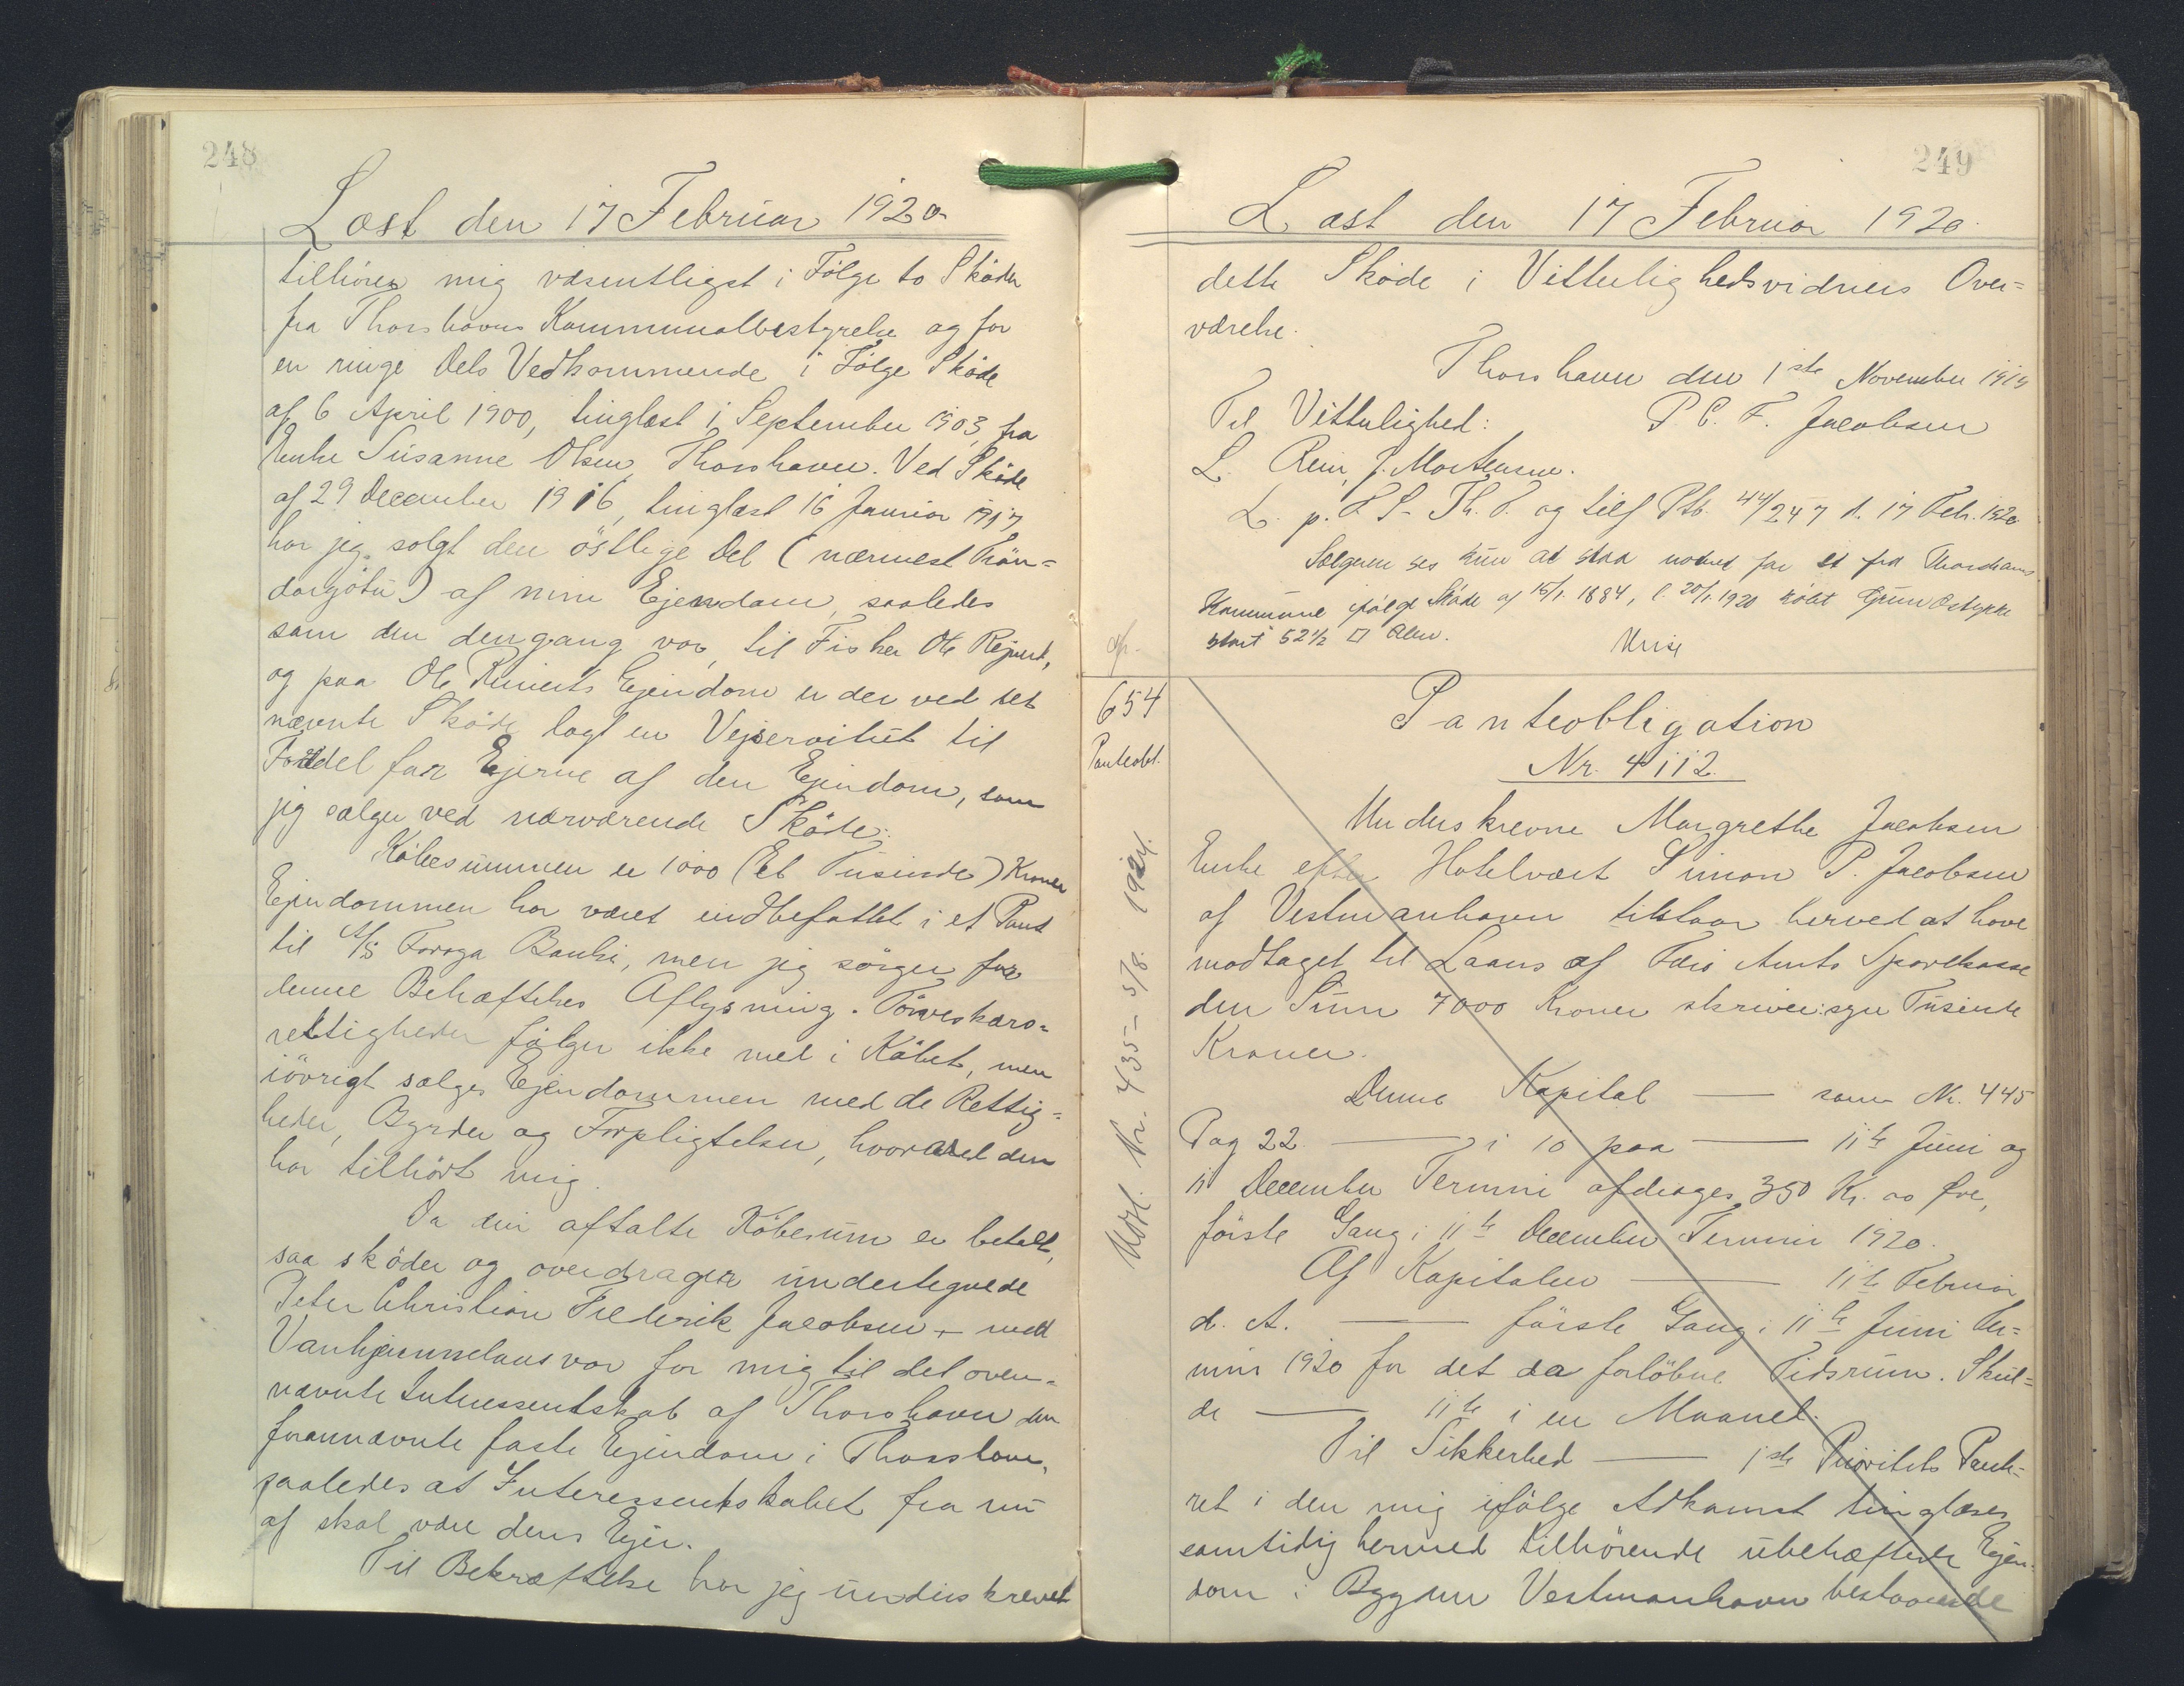 248
Læst den 17 Februar 1920.
tilhører mig væsentligst i Følge to Skøder
fra Thorshavns Kommunalbestyrelse og for
en ringe Dels Vedkommende i Følge Skøde
af 6 April 1900, tinglæst i September 1903, fra
Enke Súsanne Olsen, Thorshavn. Ved Skøde
af 29 December 1916, tinglæst 16 Januar 1917
har jeg solgt den östlige Del (nærmest Trön-
dargötu) af min Ejendom, saaledes
som den dengang var, til Fisker Ole Rejnert,
og paa Ole Reinerts Ejendom er der ved det
nævnte Skøde lagt en Vejservitut til
Fordel for Ejerne af den Ejendom, som
jeg sælger ved nærværende Skøde.
Købesummen er 1000 (Et Tusinde) Kroner
Ejendommen har været indbefattet i et Pant
til A/S Føroya Banki, men jeg sörger for
denne Behæftelses Aflysning. Törveskærs-
rettigheder følger ikke med i Købet, men
iövrigt sælges Ejendommen med de Rettig-
heder, Byrder og Forpligtelser, hvormed den
har tilhört mig.
Da den aftalte Købesum er betalt,
saa skøder og overdrager undertegnede
Peter Christian Frederik Jacobsen med
Vanhjemmelsansvar for mig til det oven-
nævnte Interessentskab af Thorshavn den
forannævnte faste Ejendom i Thorshavn,
saaledes at Interessentskabet fra nu
af skal være dens Ejer.
Til Bekræftelse har jeg underskrevet
249
Læst den 17 Februar 1920.
dette Skøde i Vitterlighedsvidners Over-
værelse.
Thorshavn den 1ste November 1919
Til Vitterlighed: P. C. F. Jacobsen
L. Rein, J. Mortensen.
L. p. F. S. Th. T. og tilf Ptb. 44/247 d. 17 Feb. 1920
Sælgeren ses kun at staa noteret for et fra Thorshavns
Kommune ifølge Skøde af 15/1. 1884, l. 20/1. 1920 købt Grundstykke
stort 52 1/2 □ Alen.
654
Panteobl.
Udsl. Nr. 435 - 5/8. 1924.
Panteobligation
Nr. 4112.
Underskrevne Margrethe Jacobsen
Enke efter Hotelvært Simon P. Jacobsen
af Vestmanhavn tilstaar herved at have
modtaget til Laans af Færø Amts Sparekasse
den Sum 7000 Kroner skriver: syv Tusinde
Kroner.
Denne Kapital — som Nr. 445
Pag 22 — i 10 paa — 11te Juni og
11 December Termin afdrages 350 Kr. 00 Øre,
første Gang i 11te December Termin 1920.
Af Kapitalen — 11te Februar
d. A. — første Gang i 11te Juni Ter-
min 1920 for det da forløbne Tidsrum. Skul-
de — 11te i en Maaned.
Til Sikkerhed — 1ste Prioritets Pante-
ret i den mig ifølge Adkomst tinglæses
samtidig hermed tilhørende ubehæftede Ejen-
dom i Bygden Vestmanhavn bestaaende